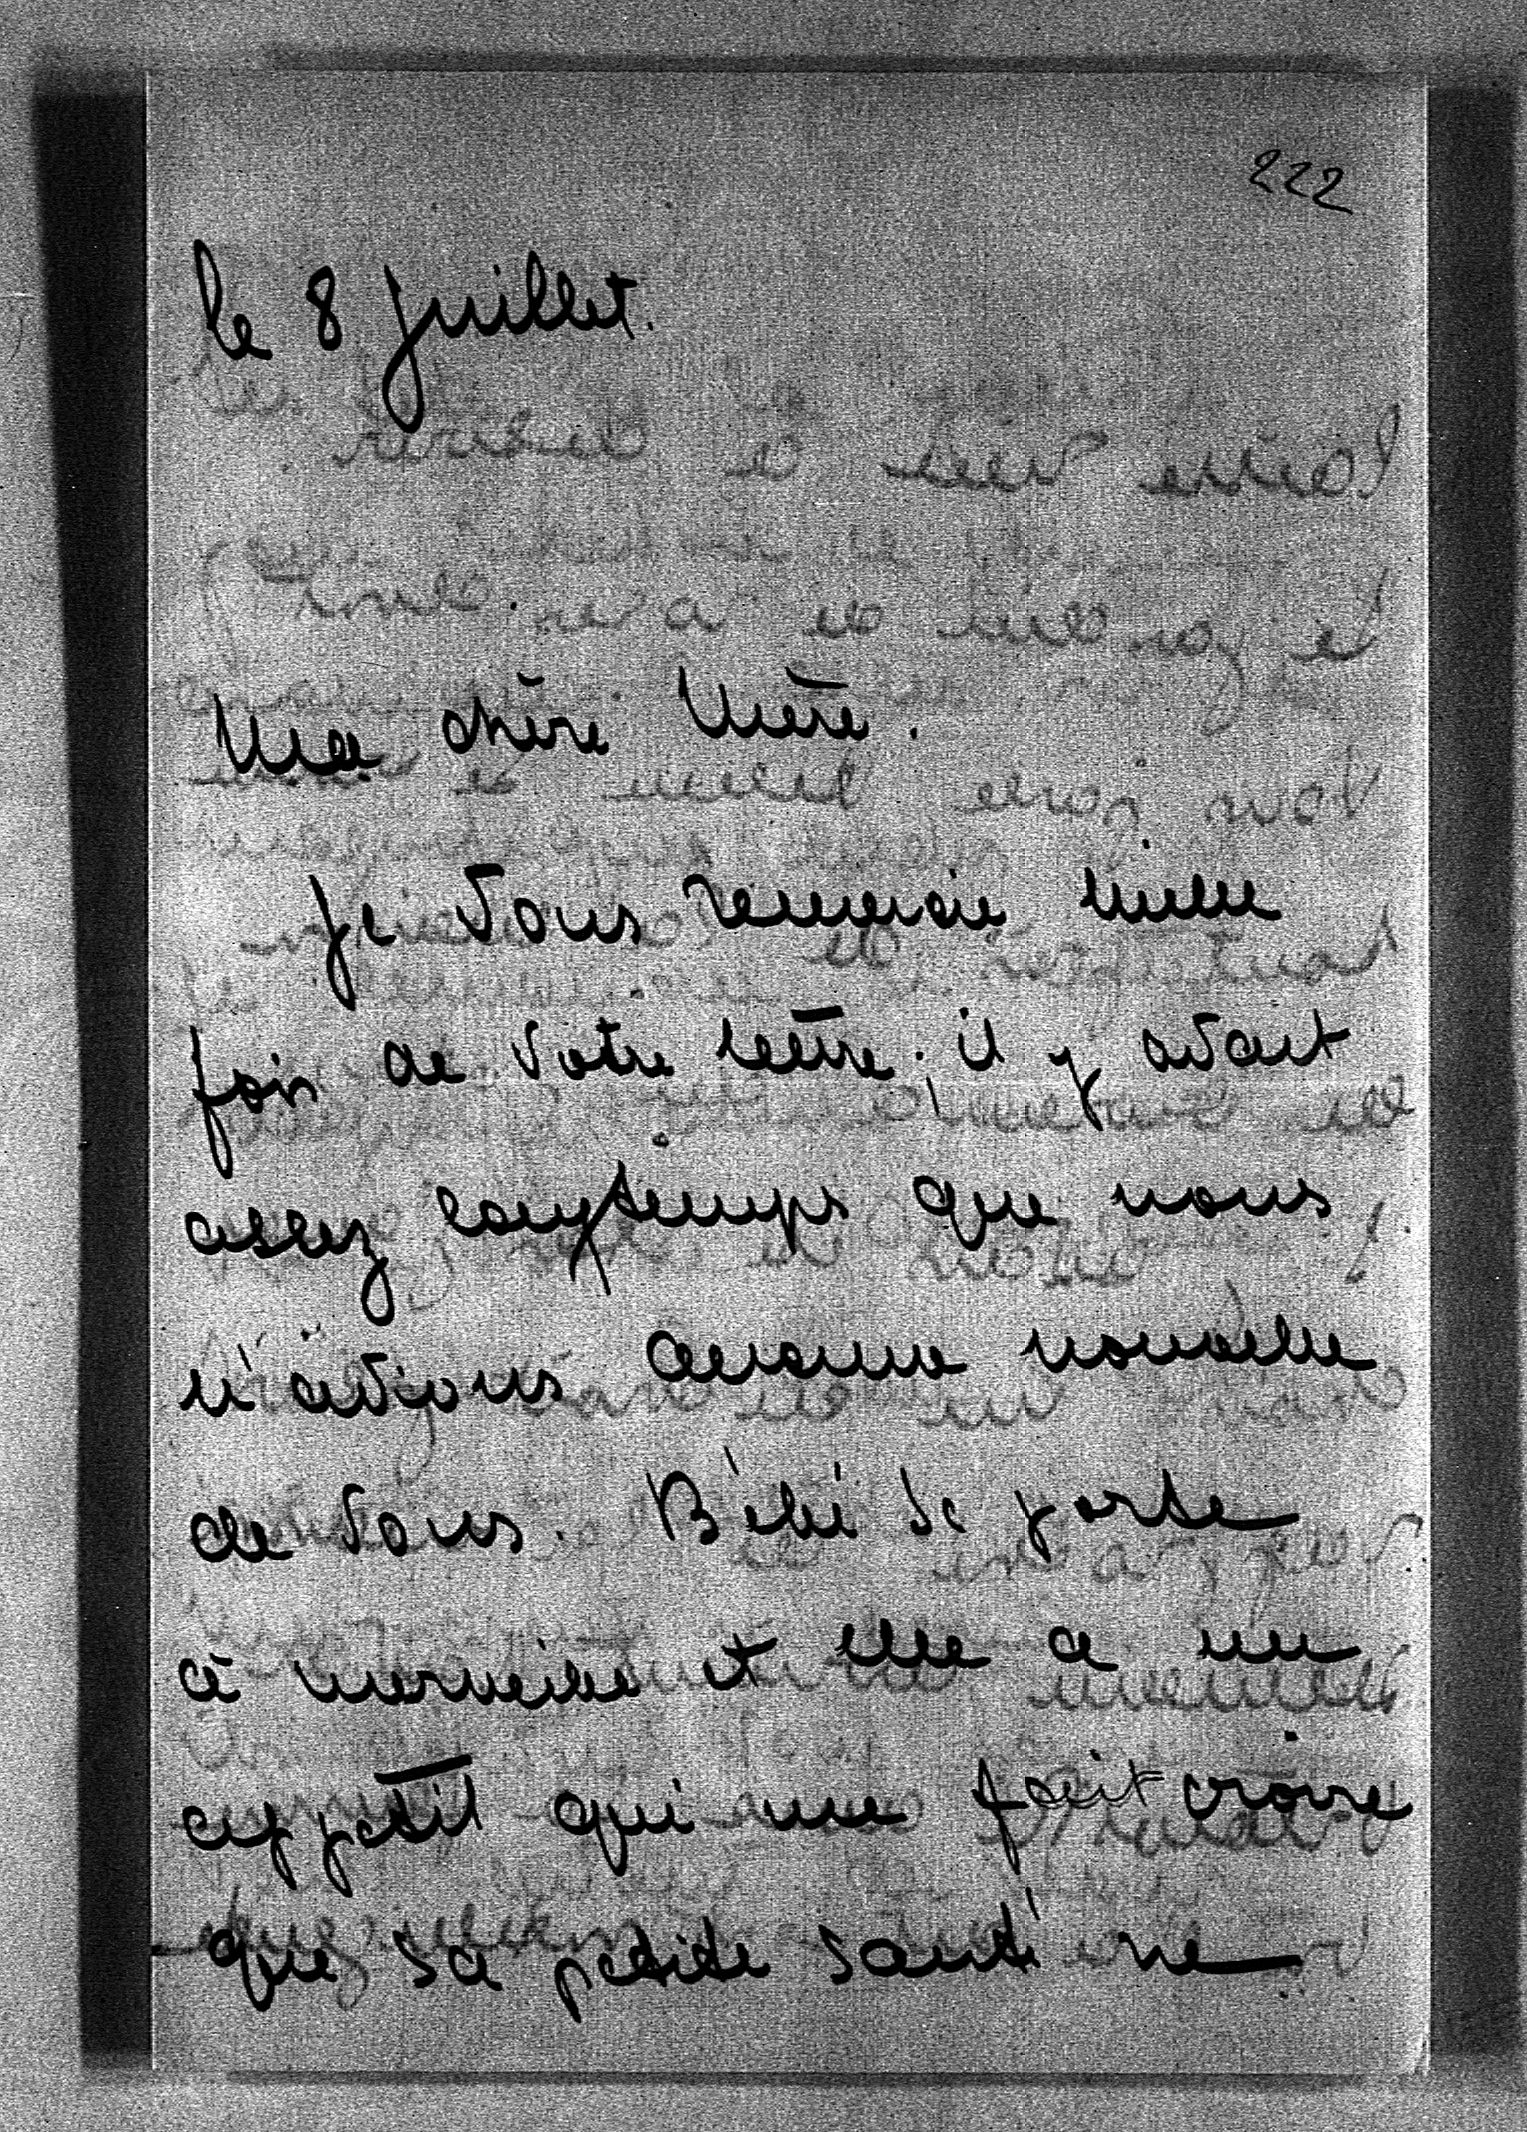 222
le 8 Juillet.
Ma chère Mère.
Je vous remercie mille
fois de votre lettre; il y avait
assez longtemps que nous
n'avions aucune nouvelle
de vous. Bébé se porte
à merveille et elle a un
appétit qui me fait croire
que sa petite santé ne